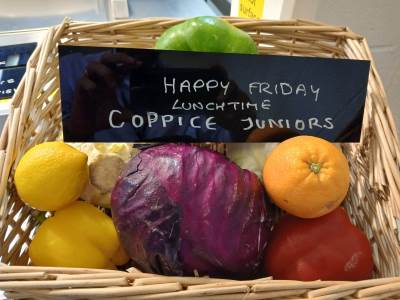 HAPPY FRIDAY
LUNCHTIME
COPPICE JUNIORS